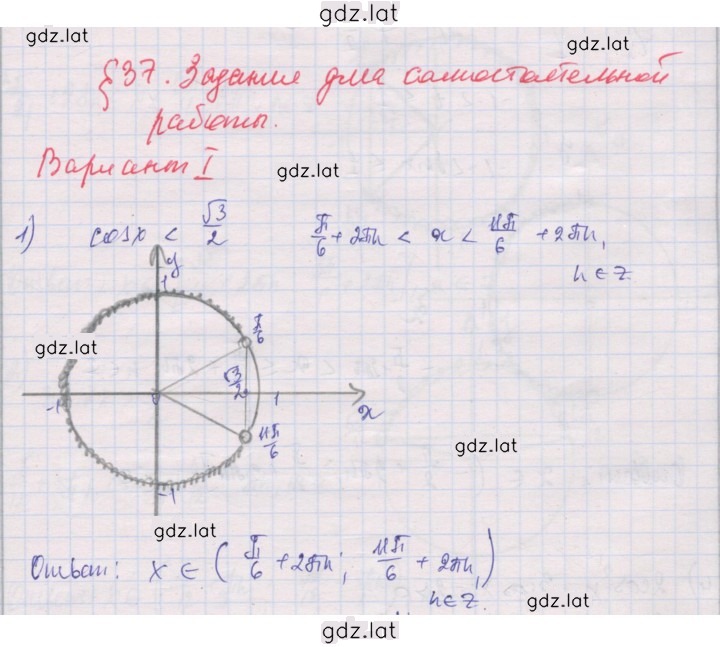 gdz.lat
gdz.lat
gdz.lat
§37. Задания для самостоятельной
работы.
Вариант I
gdz.lat
1) cos x < √3/2   π/6 + 2πn < x < 11π/6 + 2πn,
n ∈ Z
y
1
π/6
gdz.lat
√3/2
-1 0 1
x
11π/6
gdz.lat
-1
gdz.lat
Ответ: x ∈ (π/6 + 2πn; 11π/6 + 2πn,)
n ∈ Z.
gdz.lat
gdz.lat
gdz.lat